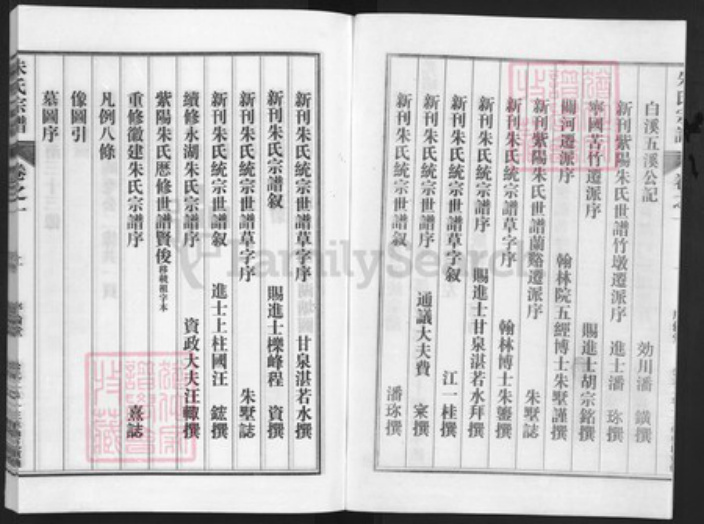 白溪五溪公記 効川潘 鐄撰
新刊紫陽朱氏世譜竹墩遷派序 進士潘 珎撰
寧國苦竹遷派序 賜進士胡宗銘撰
閘河遷派序 翰林院五經博士朱墅謹撰
新刊紫陽朱氏世譜蘭谿遷派序 朱墅誌
新刊朱氏統宗世譜草字序 翰林博士朱鎣撰
新刊朱氏統宗世譜序 賜進士甘泉湛若水拜
新刊朱氏統宗世譜草字叙 江一桂撰
新刊朱氏統宗世譜序 通議大夫費 寀撰
新刊朱氏統宗世譜叙 潘珎撰
朱氏宗譜 卷之一
新刊朱氏統宗世譜草字序 甘泉湛若水撰
新刊朱氏宗譜叙 賜進士櫟峰程 資撰
新刊朱氏統宗世譜草字序 朱墅誌
新刊朱氏統宗世譜叙 進士上柱國汪 鋐撰
續修永湖朱氏宗譜序 資政大夫汪 撰
紫陽朱氏歷修世譜賢俊移載祖字本
重修徽建朱氏宗譜序 熹誌
凡例八條
像圖引
墓圖序
FamilySearch